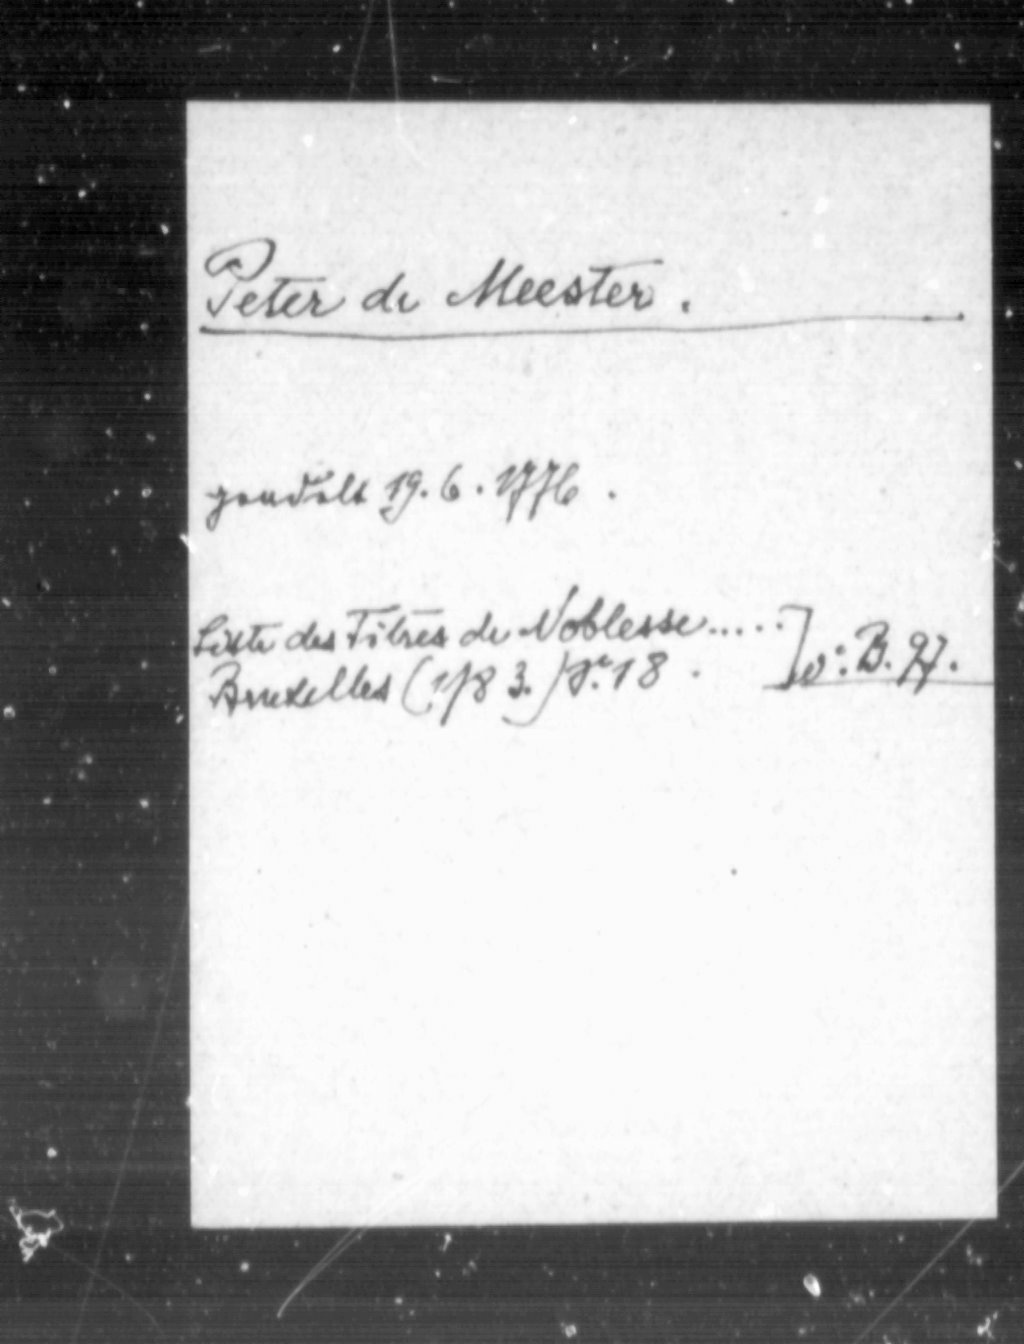 Peter de Meester.
geadelt 19. 6. 1776.
Liste des Titres de Noblesse.....
Bruxelles (1783.) S. 18.
B. 97.